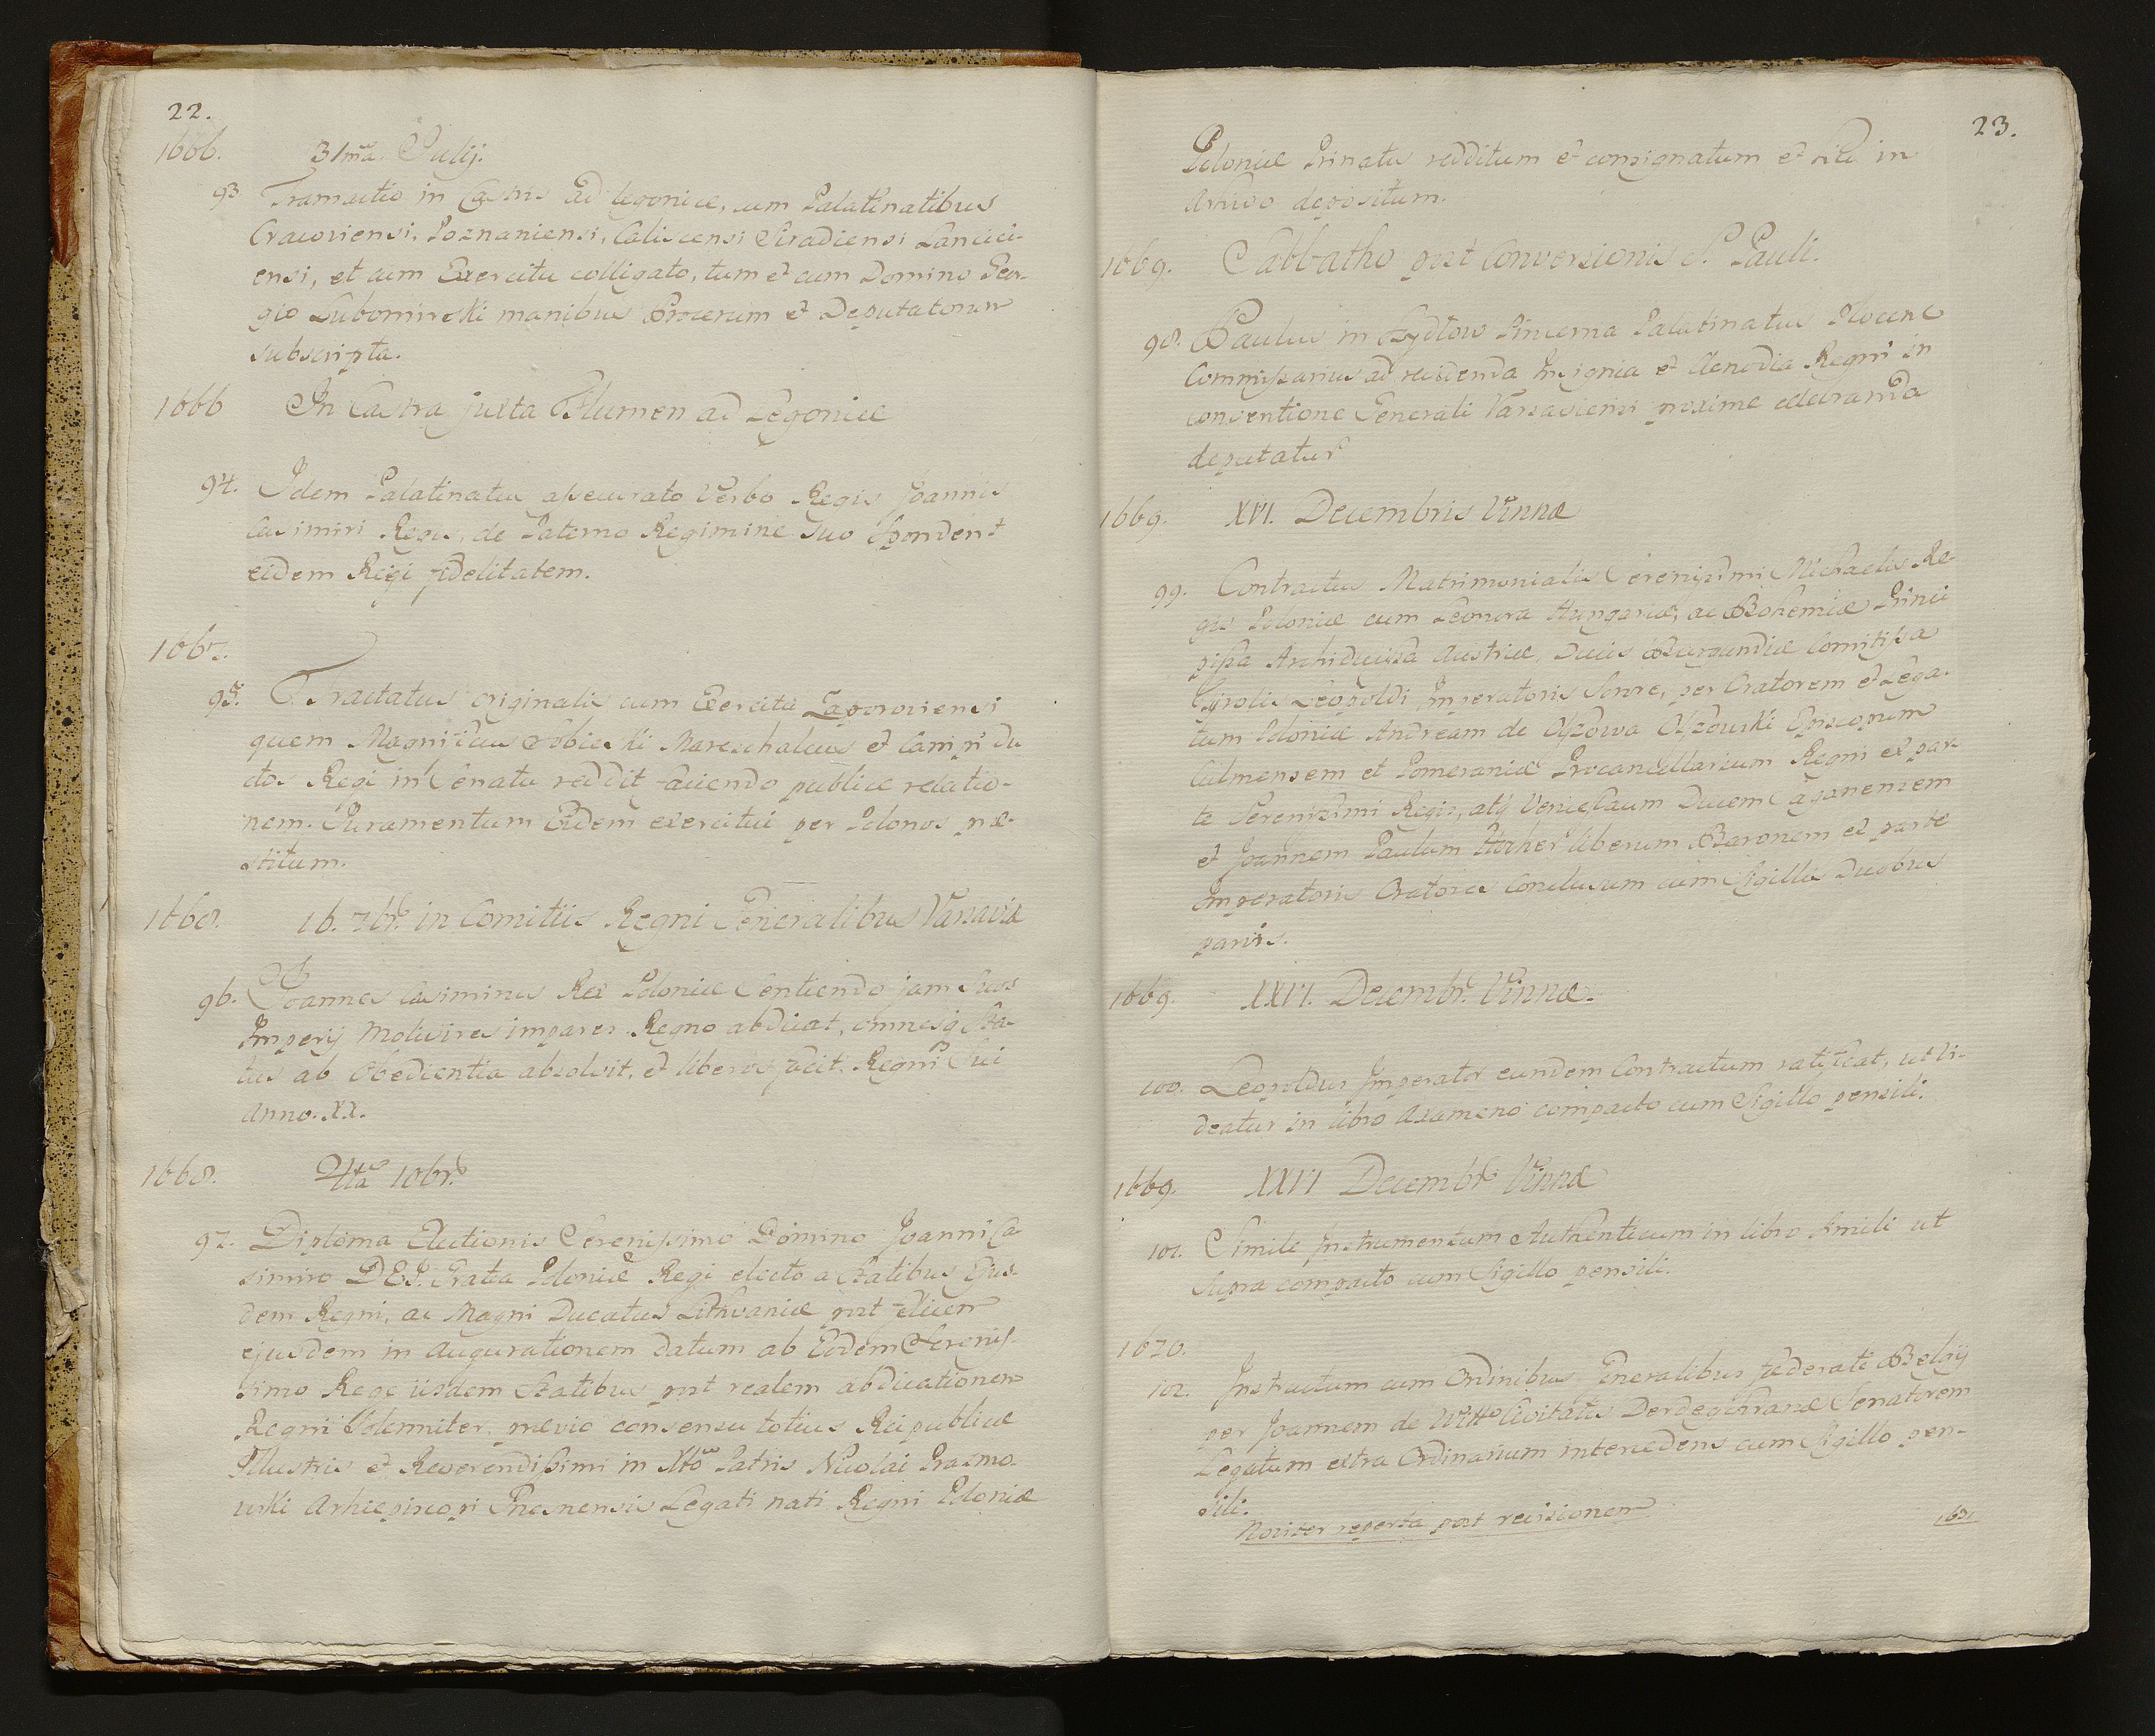 22.
1666. 31ma. Julij.
93 Transactio in Castris ad Legonice, cum Palatinatibus
Cracoviensi, Poznaniensi, Calisiensi Siradiensi Lancici-
ensi, et cum Exercitu colligato, tum et cum Domino Geor-
gio Lubomirski manibus Procerum et Deputatorum
subscripta.
1666 In Castra juxta Flumen ad Legonice
94. Idem Palatinatus assecurato Verbo Regis Joannis
Casimiri Regis, de Paterno Regimine suo spondent
eidem Regi fidelitatem.
1667.
95. Tractatus originalis cum Exercitu Zaporoviensi
quem Magnificus Sobieski Mareschalcus et Campi du
ctor Regi in Senatu reddit faciendo publice relatio-
nem. Juramentum Eidem exercitui per Polonos præ-
stitum.
1668. 16. 7br. in Comitiis Regni Generalibus Varsaviæ
96. Joannes Casimirus Rex Poloniæ Sentiendo jam Suos
Imperij Moli vires impares Regno abdicat, omnesq Sta-
tus ab Obedientia absolvit, et liberos facit. Regni Sui
Anno. XX.
1668. 4ta 10br.
97. Diploma Electionis Serenissimo Domino Joanni Ca
simiro DEI Gratia Poloniæ Regi electo a Statibus Ejus-
dem Regni, ac Magni Ducatus Lithvaniæ post felicem
ejusdem in Augurationem datum ab Eodem Sereniss-
simo Rege iisdem Statibus post realem abdicationem
Regni Solenniter prævio consensu totius Reipublicæ
Illustris et Reverendissimi in Xto Patris Nicolai Prazmo-
wski Arhiepiscopi Gnesnensis Legati nati Regni Poloniæ
23.
Poloniæ Primatis redditum et consignatum et sibi in
Arhivo depositum.
1669. Sabbatho post Conversionis S. Pauli.
98. Paulus in Pincerna Palatinatus Plocens
Commissarius ad revidenda Insignia et Clenodia Regni in
conventione Generali Varsaviensi proxime celebranda
deputatus
1669. XVI. Decembris Vinnæ
99. Contractus Matrimonialis Serenissimi Michaelis Re-
gis Poloniæ cum Leonora Hungariæ, ac Bohemiæ Princi
pissa Archiducissa Austriæ, Ducis Burgundiæ Comitissa
Tyrolis Leopoldi Imperatoris Sorore, per Oratorem et Lega-
tum Poloniæ Andream de Olszowa Olszowski Episcopum
Culmensem et Pomeraniæ Procancellarium Regni ex par-
te Serenissimi Regis, atq Venceslaum Ducem Saganensem
et Joannem Paulum Hocher liberum Baronem ex parte
Imperatoris Oratores Conclusum cum Sigillis Duobus
parvis.
1669. XXVI. Decembr. Vinnæ.
100. Leopoldus Imperator eundem Contractum ratificat, ut vi-
deatur in libro Axameno compacto cum Sigillo pensili.
1669. XXVI Decembr. Vinnæ
101. Simile Instrumentum Authenticum in libro simili ut
Supra compacto cum Sigillo pensili.
1670.
102. Instructum cum Ordinibus Generalibus fæderati Belgij
per Joannem de Witto Civitatis Senatorem
Legatum extra Ordinarium intercedens cum Sigillo pen-
sili.
Noviter reperta post revisionem